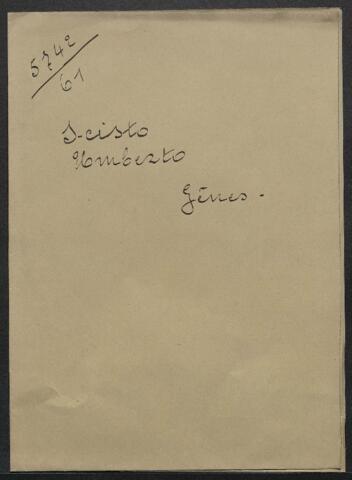 5742
61
I-cisto
Umberto
Gênes -